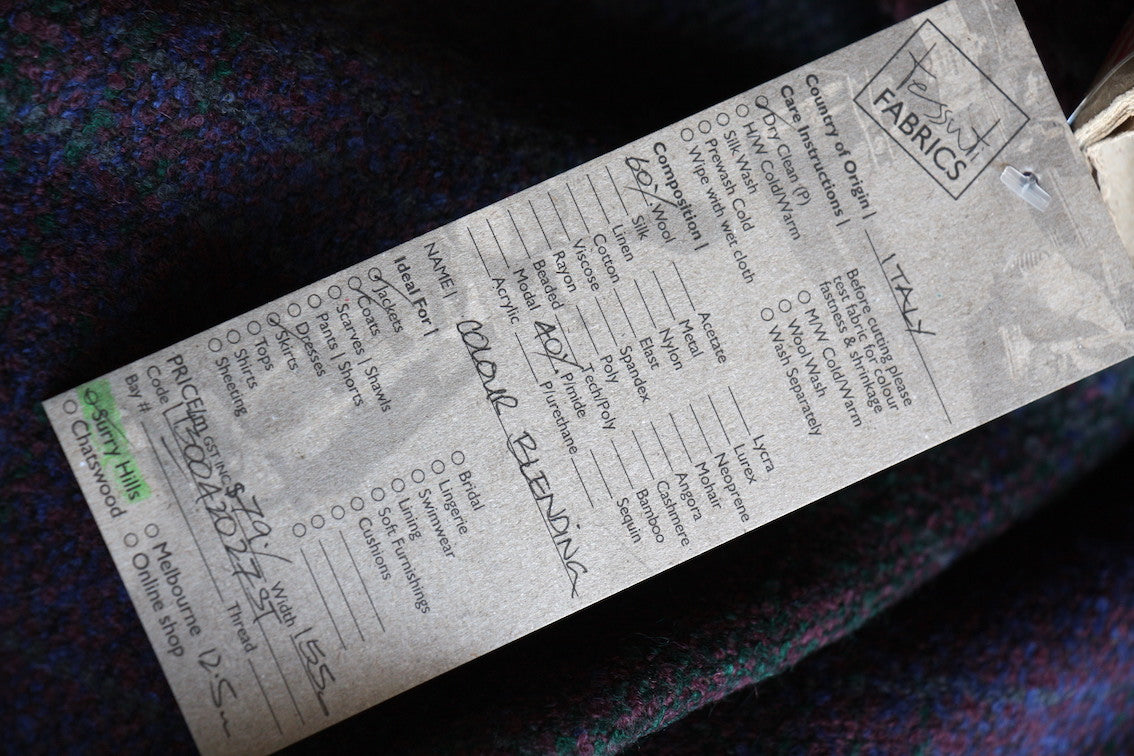 tessuti
FABRICS
Country of Origin | ITALY
Care Instructions |
Dry Clean (P)
H/W Cold/Warm
Silk Wash
Prewash Cold
Wipe with wet cloth
Before cutting please
test fabric for colour
fastness & shrinkage
M/W Cold/Warm
Wool Wash
Wash Separately
Composition |
60% Wool
Silk
Linen
Cotton
Viscose
Rayon
Beaded
Modal
Acrylic
Acetate
Metal
Nylon
Elast
Spandex
Poly
Tech/Poly
40% P/mide
P/urethane
Lycra
Lurex
Neoprene
Mohair
Angora
Cashmere
Bamboo
Sequin
NAME | COLOUR BLENDING
Ideal For |
Jackets
Coats
Scarves | Shawls
Pants | Shorts
Dresses
Skirts
Tops
Shirts
Sheeting
Bridal
Lingerie
Swimwear
Lining
Soft Furnishings
Cushions
PRICE/m GST INC $79.- Width 155
Code
Bay # Thread
Surry Hills
Chatswood
Melbourne
Online shop